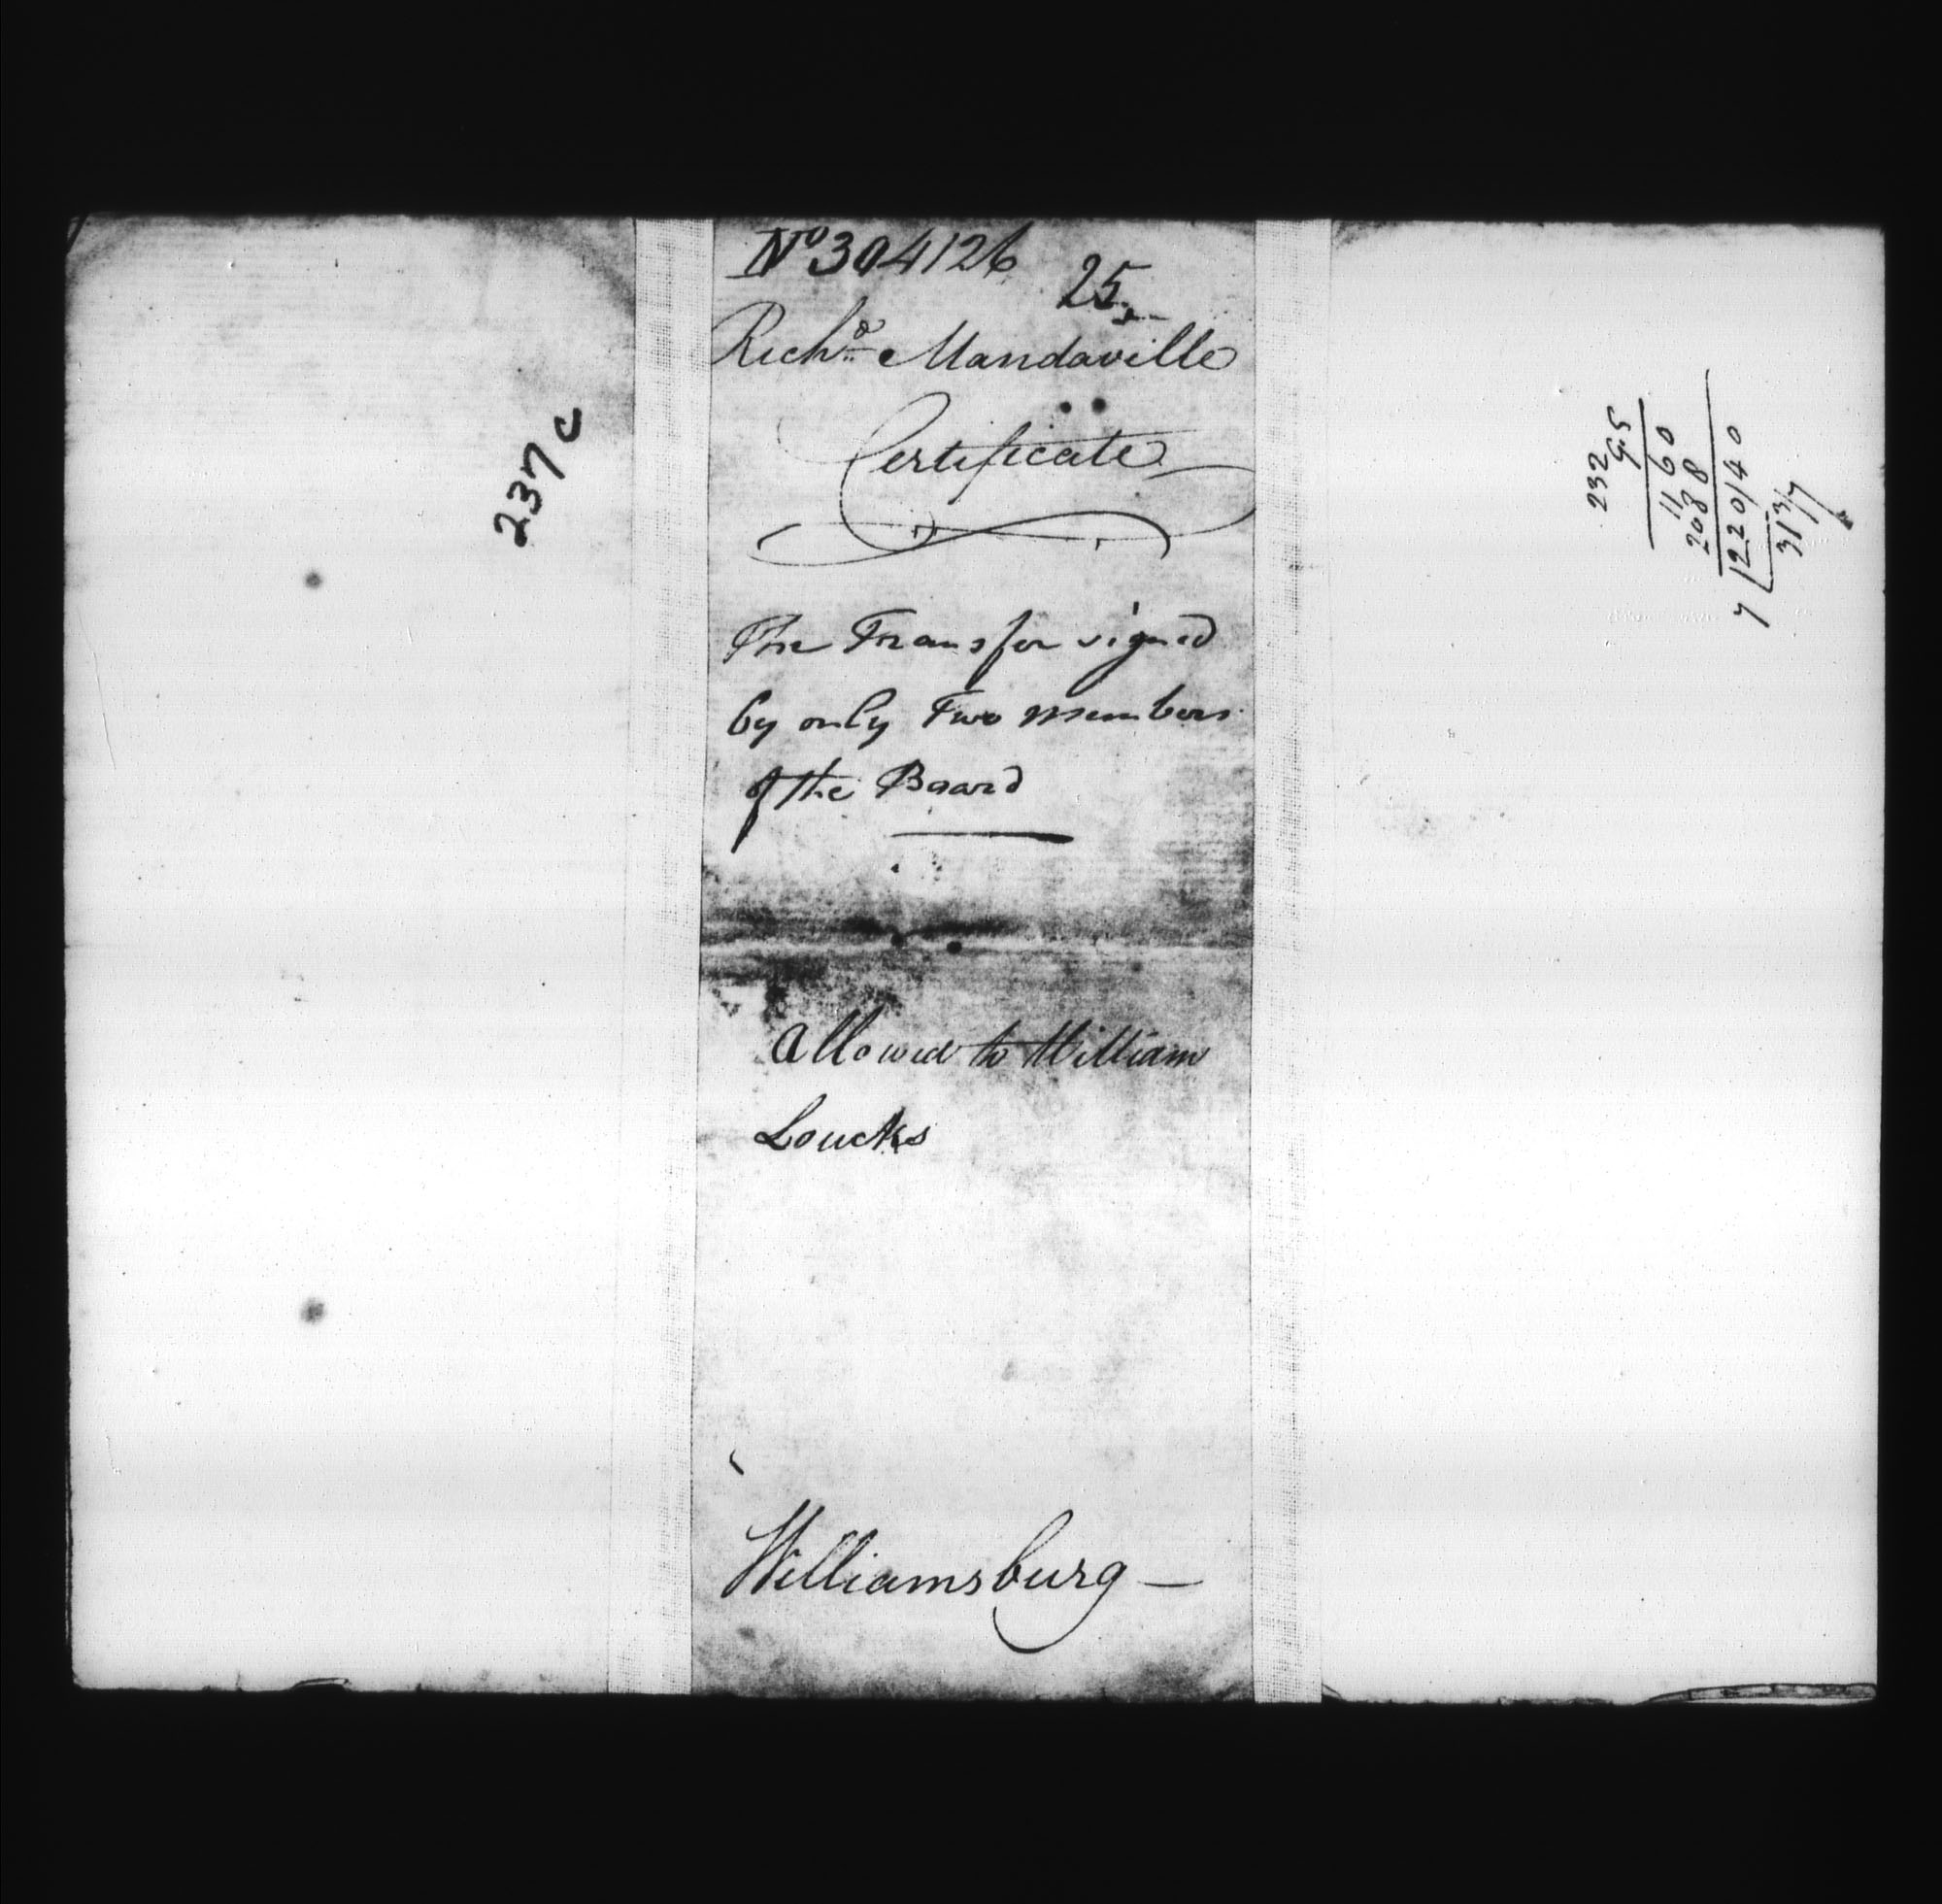 237 c
No 304126
25
Richd Mandaville
Certificate
The Transfer signed
by only Two members
of the Board
allowed to William
Loucks
Williamsburg —
232
95
1160
2088
7 22040
317